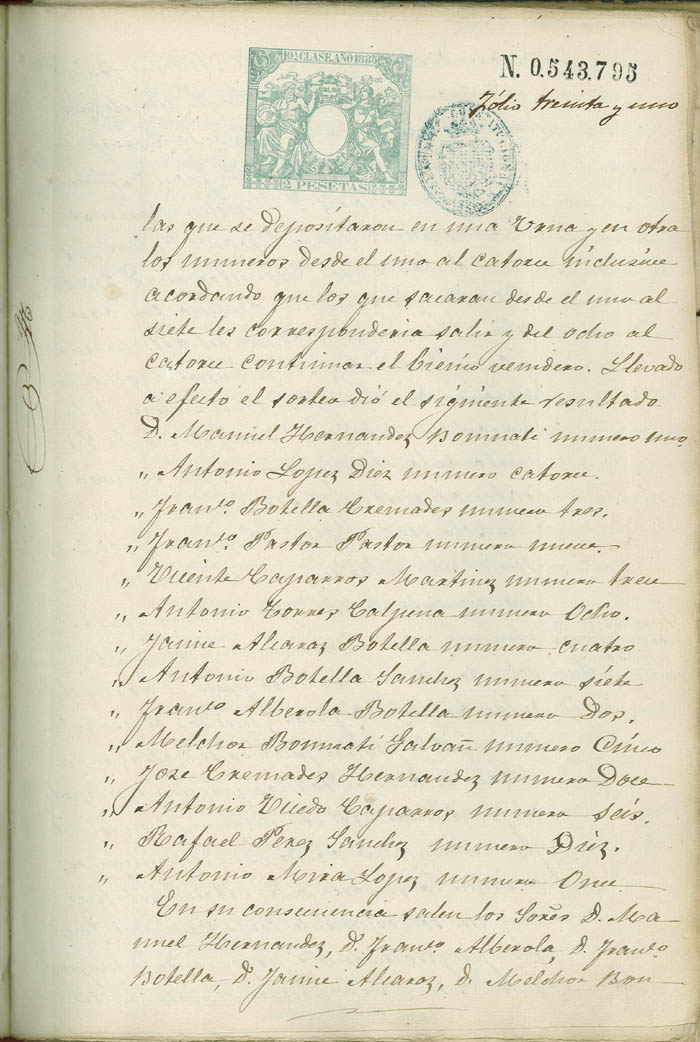 10ª CLASE. AÑO 1885
2 PESETAS
N. 0.543.795
Fólio treinta y uno
las que se depositaron en una Urna y en otra
los numeros desde el uno al catorce inclusive
acordando que los que sacaran desde el uno al
siete les corresponderia salir y del ocho al
catorce continuar el bienio venidero. Llevado
a efecto el sorteo dió el siguiente resultado
D. Manuel Hernandez Bonmati numero uno.
" Antonio Lopez Diez numero catorce.
" Franco. Botella Cremades numero tres.
" Franco. Pastor Pastor numero nueve.
" Vicente Caparros Martinez numero trece
" Antonio Torres Calpena numero Ocho.
" Jaime Alcaraz Botella numero cuatro
" Antonio Botella Sanchez numero siete
" Franco Alberola Botella numero Dos.
" Melchor Bonmati Galvañ numero Cinco
" Jose Cremades Hernandez numero Doce
" Antonio Vicedo Caparros numero seis.
" Rafael Perez Sanchez numero Diez.
" Antonio Mira Lopez numero Once
En su consecuencia salen los Sores D. Ma-
nuel Hernandez, D. Franco Alberola, D. Franco.
Botella, D. Jaime Alcaraz, D. Melchor Bon-